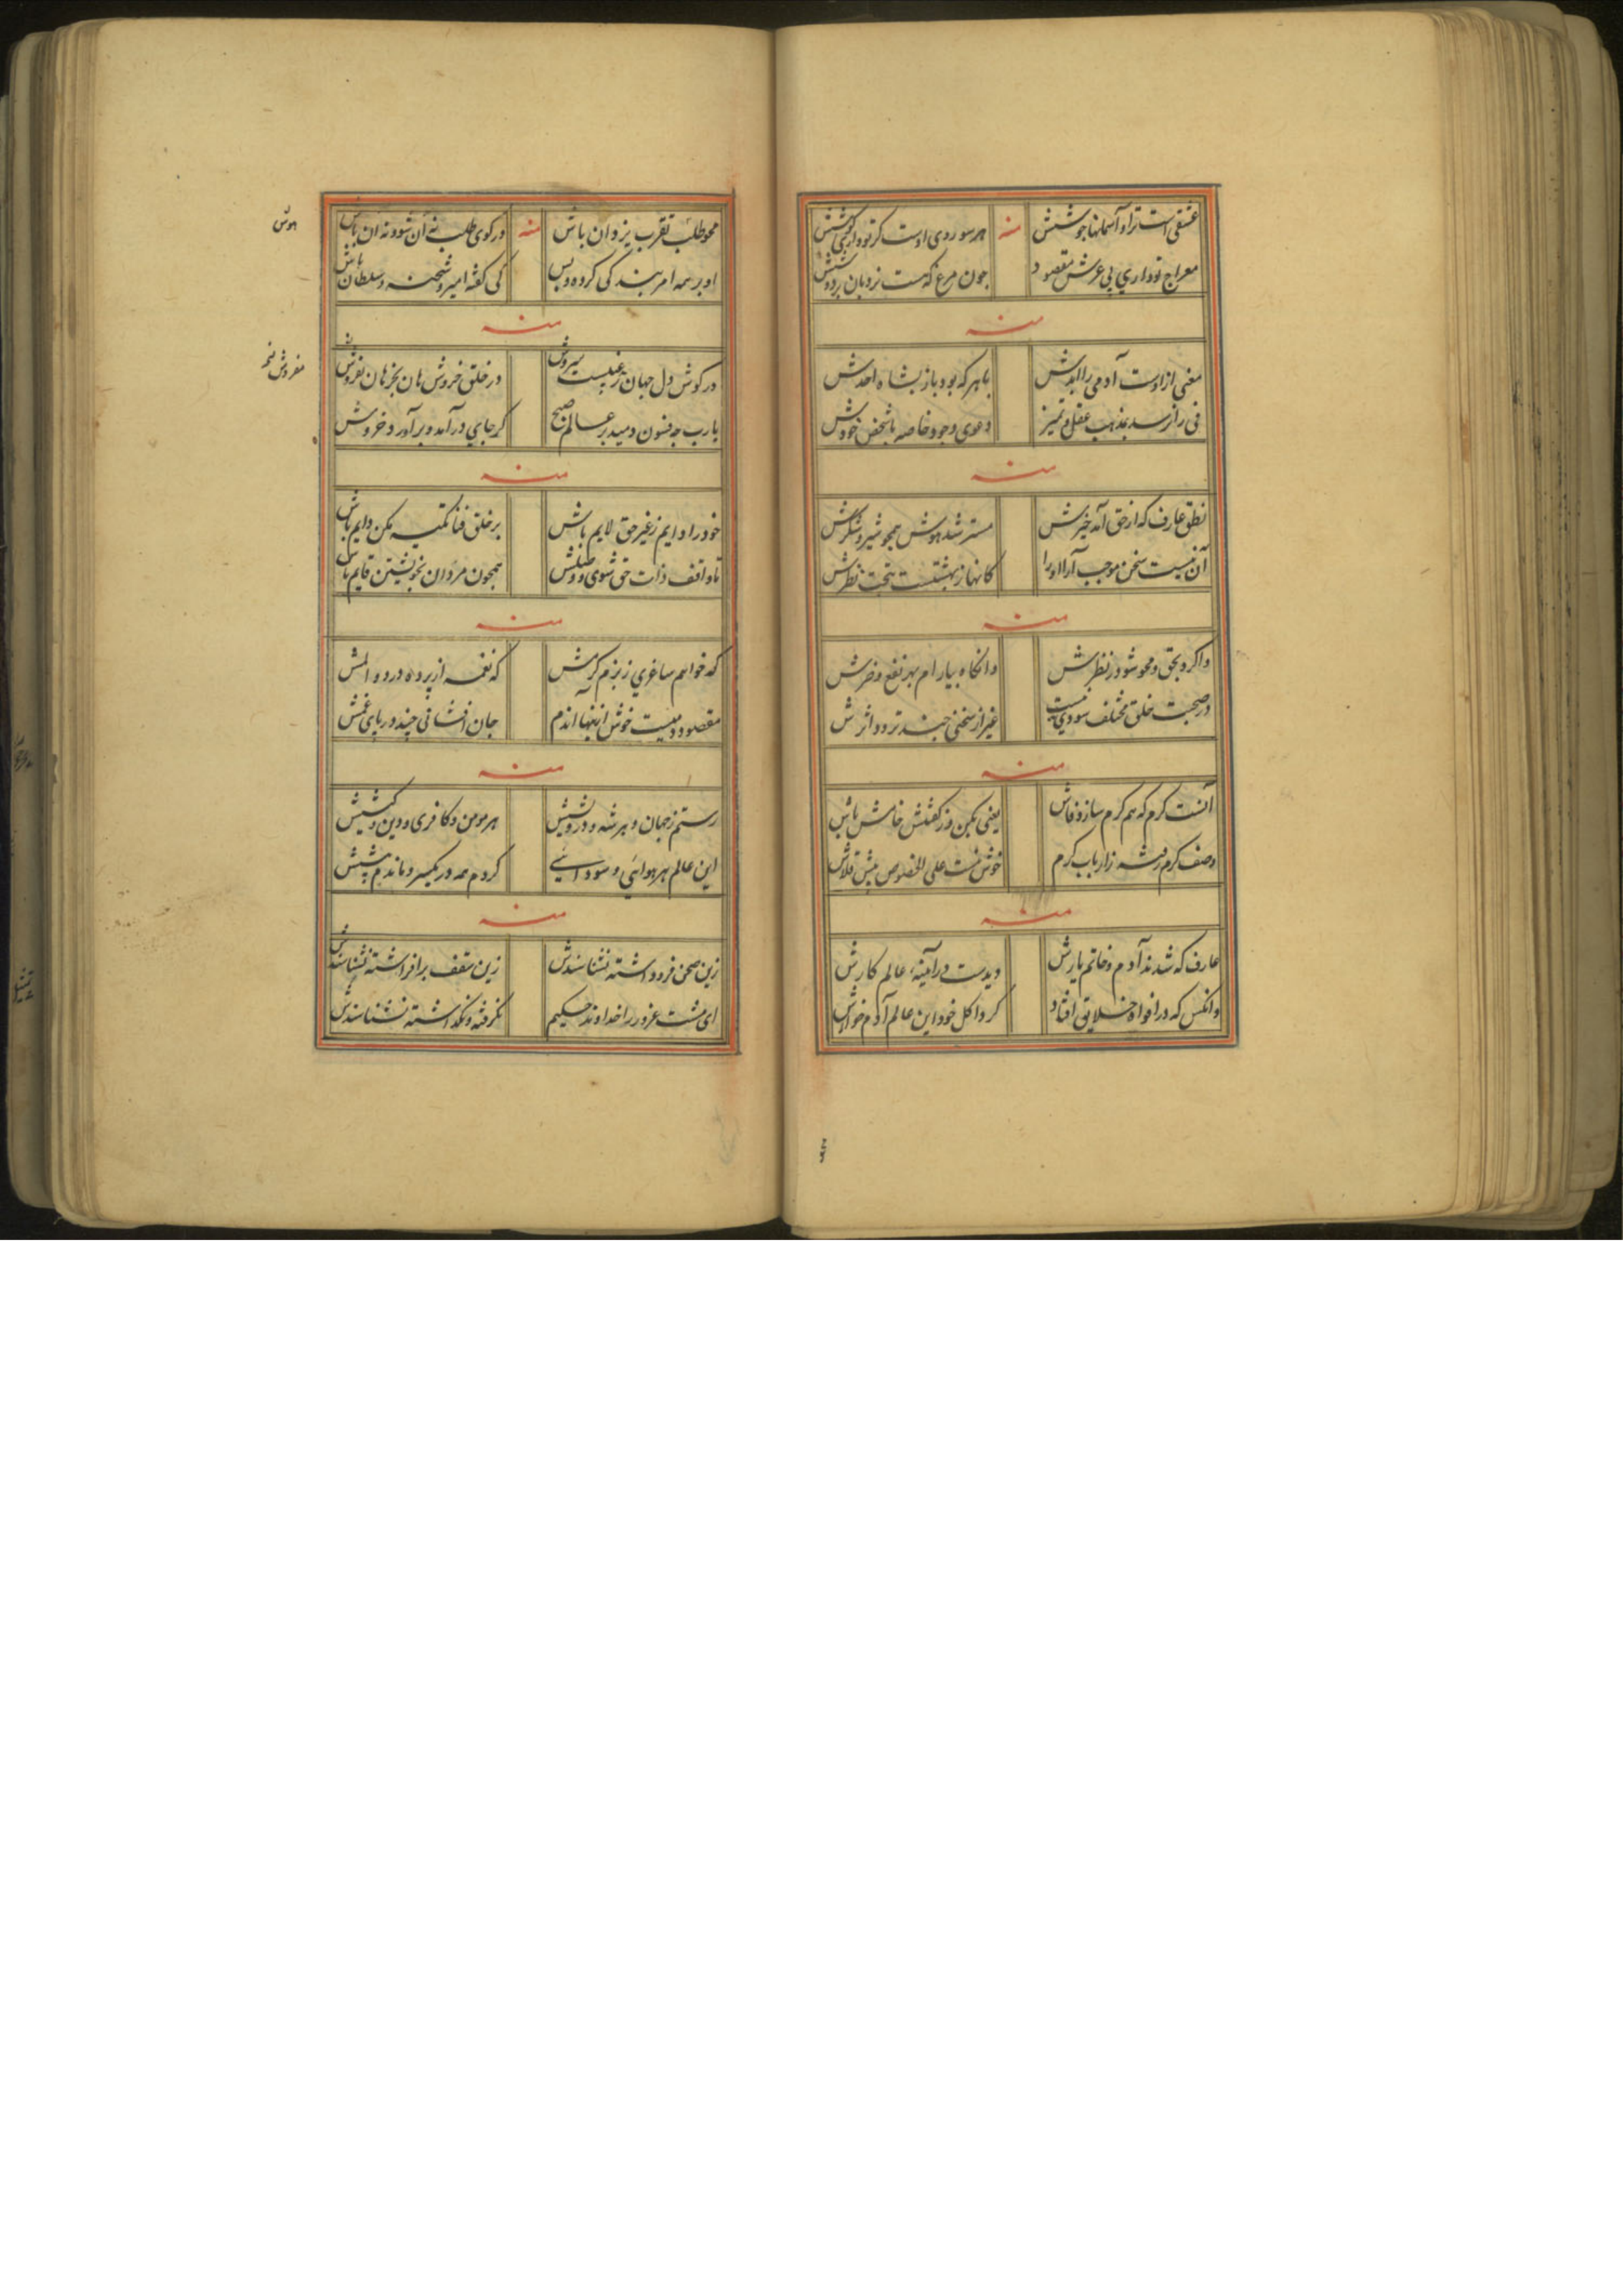 عشقی است ترا و آسمانها جوشش
منه
هر سو روی اوست گر تو داری کوشش
معراج تو داری پی عرش مقصود
چون مرغ که هست نردبان بر دوشش
منه
معنی از اوست آدمی را ابدش
با هر که بود باز بشاه احدش
نی راز رسد بمذهب عقل و تمیز
دعوی وجود خاصه با شخص خودش
منه
نطق عارف که از حق آمد خبرش
مسترشد هوش همچو شیر و شکرش
آن نیست سخن موجب آرا او را
کانها ز بهشتست بتحت نظرش
منه
واگرد بحق و محو شو در نظرش
وانگاه بیارام بهر نفع و ضرش
در صحبت خلق مختلف سودی نیست
غیر از سخنی چند تردد اثرش
منه
آنست کرم که هم کرم سازد فاش
یعنی بکن و ز گفتنش خامش باش
وصف کرم رفته ز ارباب کرم
خوش نیست علی الخصوص پیش قلاش
منه
عارف که شدند آدم و خاتم یارش
دیدست در آیینهٔ عالم کارش
وانکس که در افواه خلایق افتاد
کرد اکل خود این عالم آدم خوارش
محو طلب تقرب یزدان باش
منه
در کوی طلب نه آن شو و نه آن باش
او بر همه امر بندگی کرده و بس
کی گفته امیر و شحنه و سلطان باش
هوش
منه
در گوش دل جهان ز غیبست سروش
در خلق خروش هان بخر هان بفروش
یارب چه فسون دمید بر عالم صبح
کز جای درآمد و برآورد خروش
مفروش
منه
خود را دایم ز غیر حق لایم باش
بر خلق فنا تکیه مکن دایم باش
تا واقف ذات حق شوی و وصلش
همچون مردان بخویشتن قایم باش
منه
که خواهم ساغری ز بزم کرمش
که نغمه از پرده درد و المش
مقصودم نیست خوش از اینها آندم
جان افشانی چند در پای غمش
منه
رستم ز جهان و هر شه و درویشش
هر مومن و کافری و دین و کیشش
این عالم هر هوائی و سودائی
کردم همه در یکسر و ماندم پیشش
منه
زین صحن فرود داشته نشناسندش
زین سقف برافراشته نشناسندش
ای مشت غرور را خداوند حکیم
نگرفته و نگذاشته نشناسندش